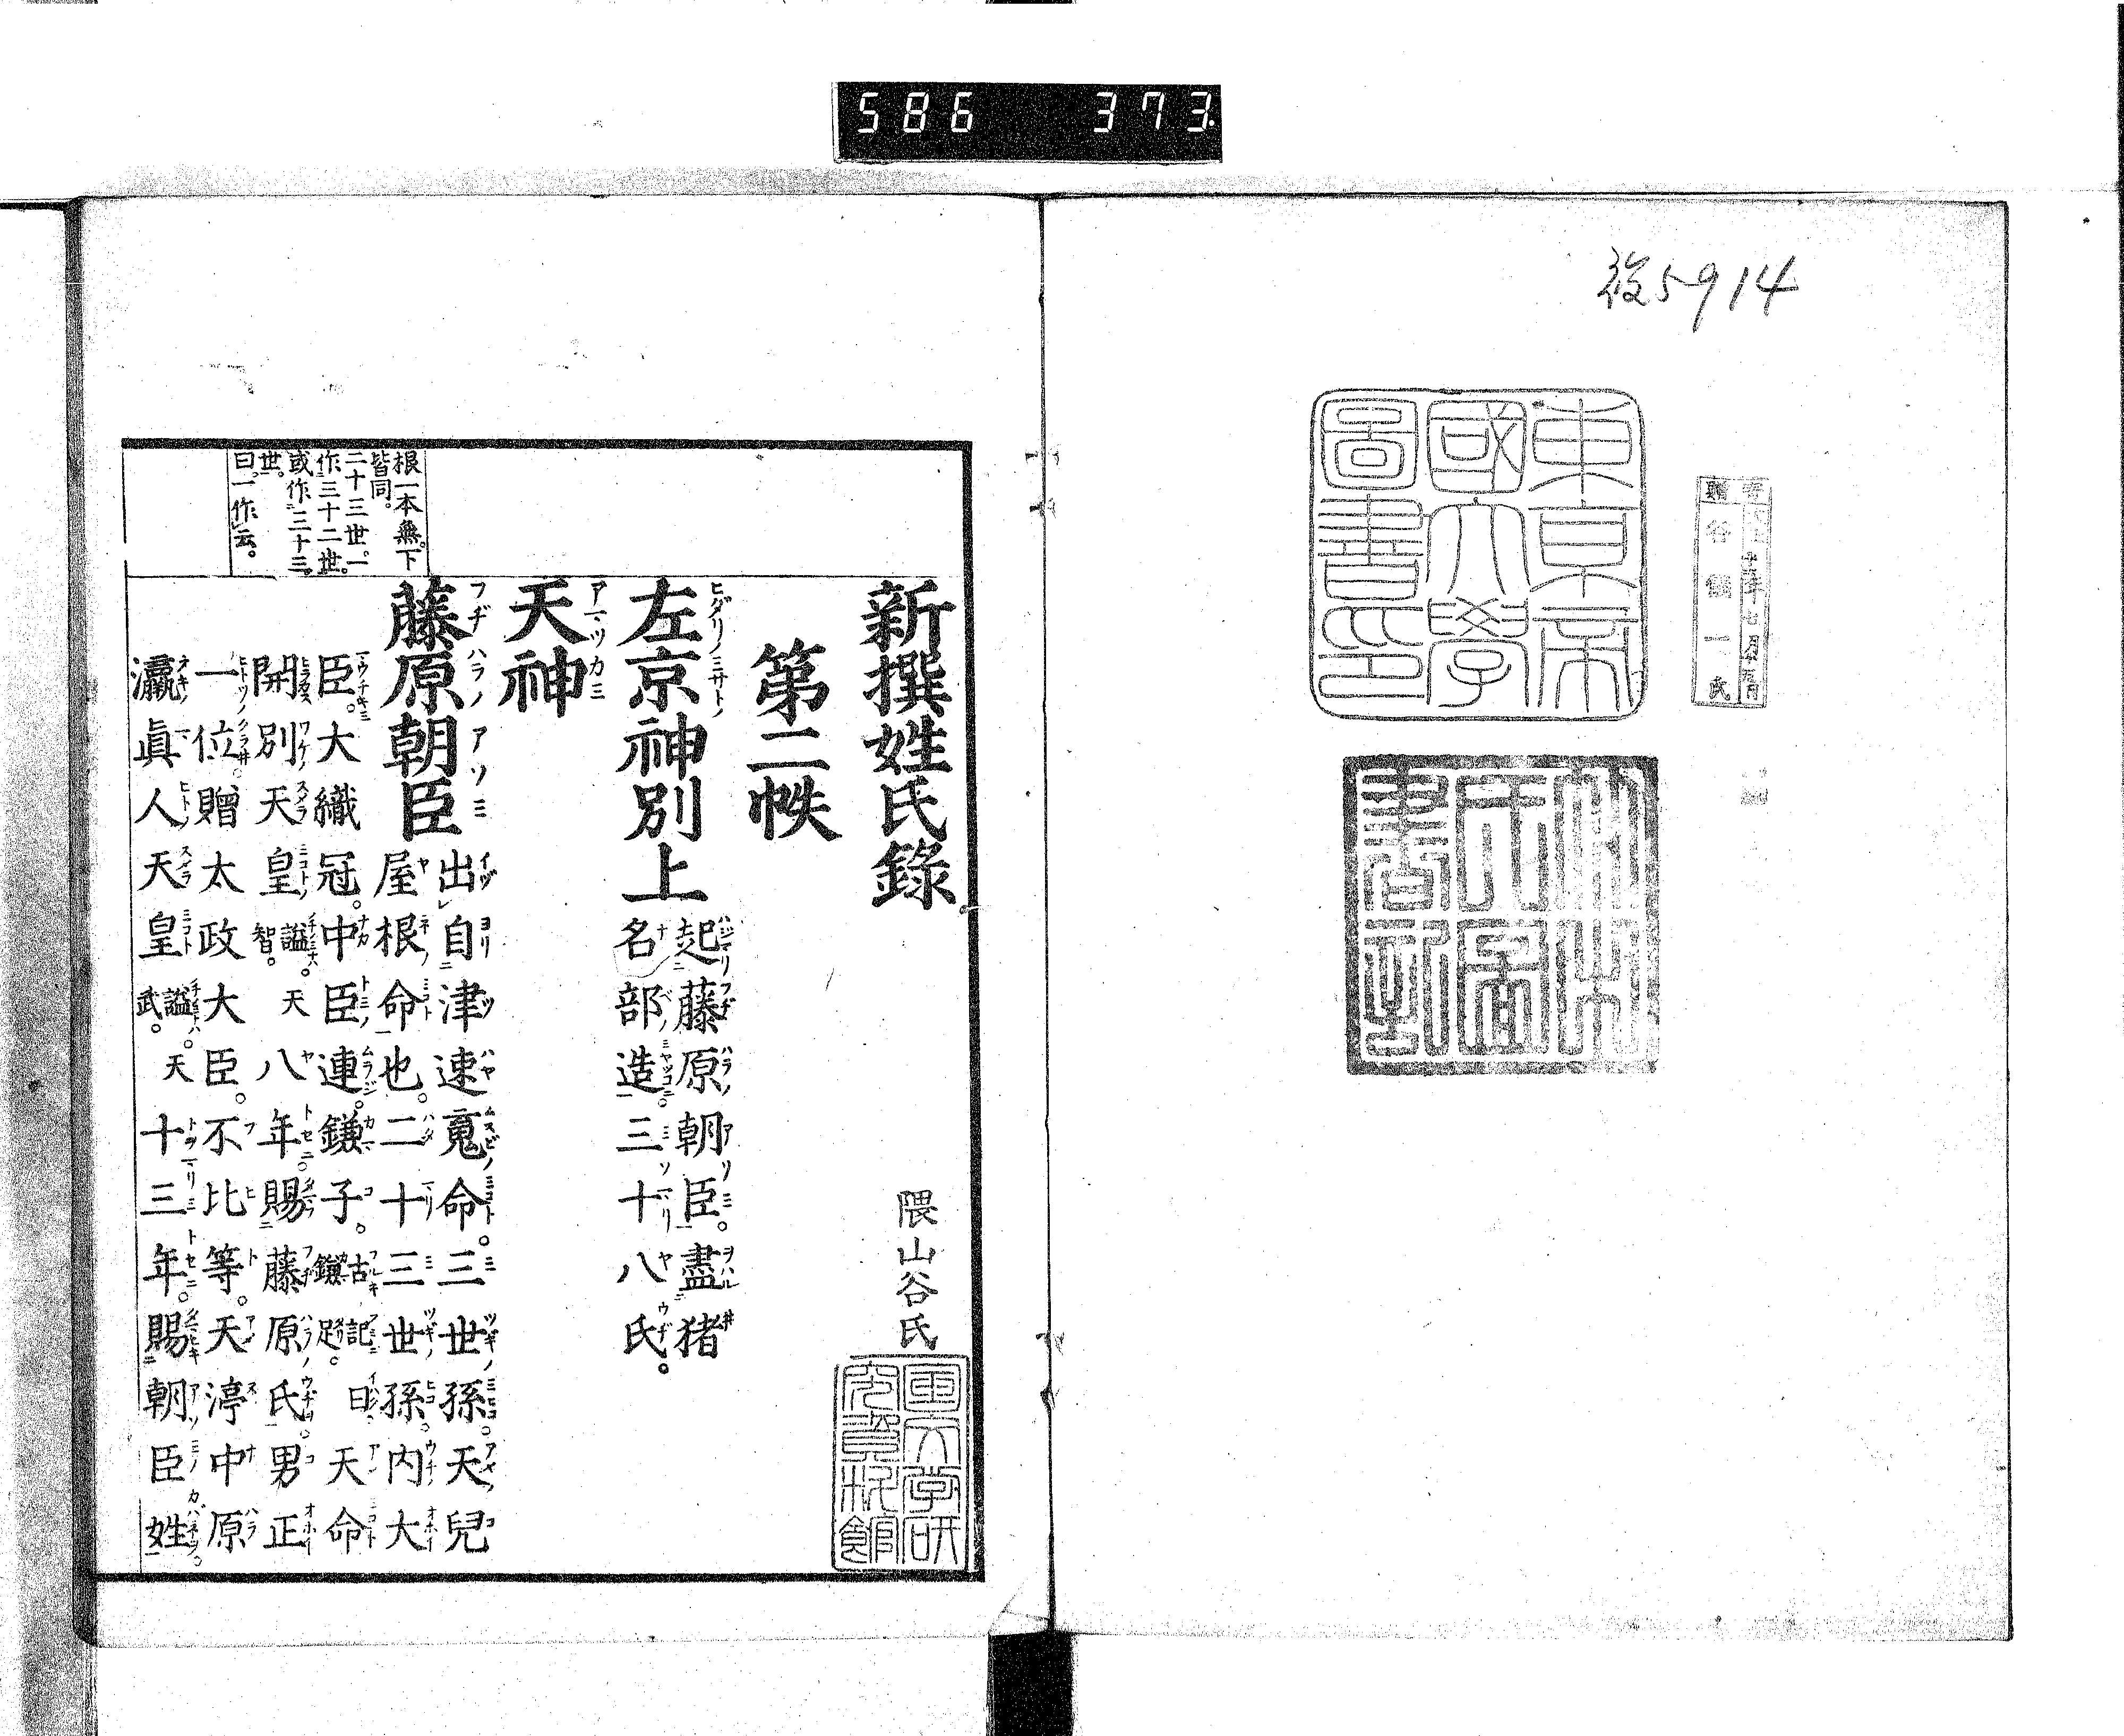 586 373
5914
東京帝
國大學
圖書印
寄贈
谷
一氏
新撰姓氏錄
隈山谷氏
第二帙
左京神別上
起藤原朝臣。盡猪
名部造三十八氏。
天神
藤原朝臣
出自津速魂命。三世孫天兒
屋根命也。二十三世孫內大
臣。大織冠。中臣連。鎌子。古記曰鎌足。天命
開別天皇謚天智。八年賜藤原氏。男正
一位贈太政大臣。不比等。天渟中原
瀛眞人天皇謚天武。十三年。賜朝臣姓
根一本無。下
皆同。
二十三世。一
作三十二世。
或作三十三
世。
曰。一作云。
国文学研
究資料館